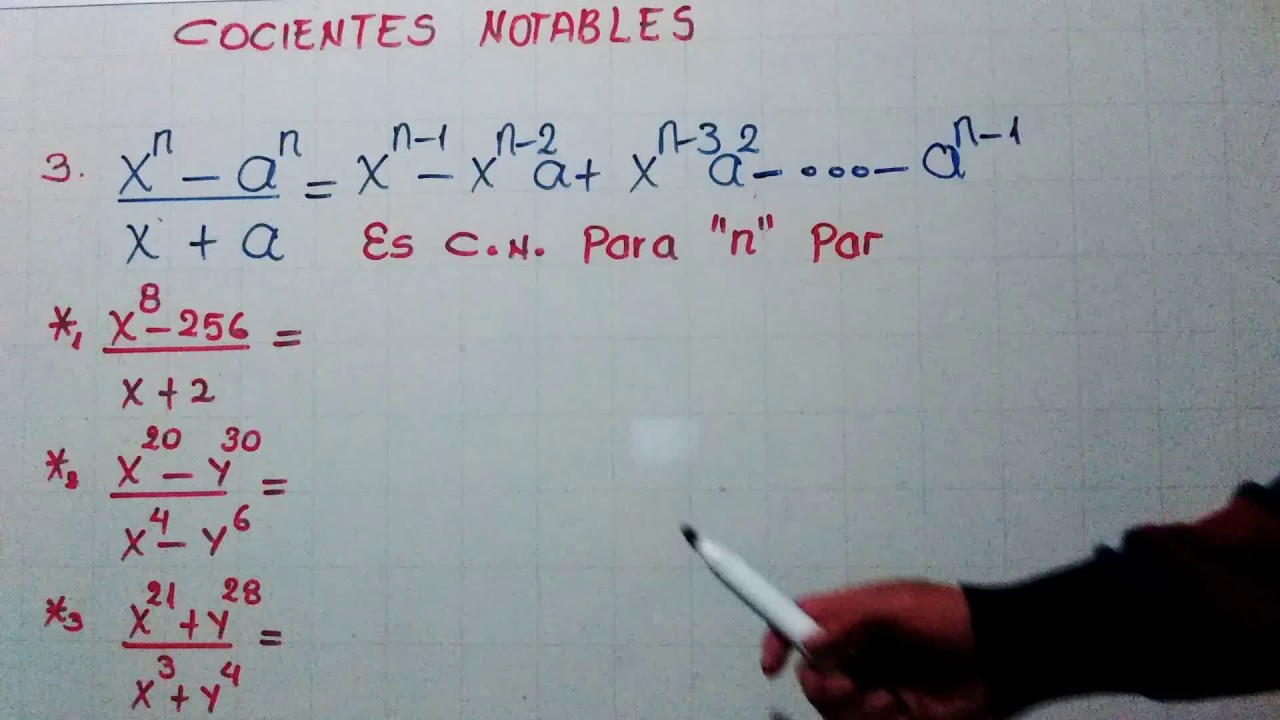 COCIENTES NOTABLES
3. (xⁿ - aⁿ)/(x + a) = xⁿ⁻¹ - xⁿ⁻²a + xⁿ⁻³a² - ....- aⁿ⁻¹
Es C.N. Para "n" Par
*₁ (x⁸ - 256)/(x + 2) =
*₂ (x²⁰ - y³⁰)/(x⁴ - y⁶) =
*₃ (x²¹ + y²⁸)/(x³ + y⁴) =